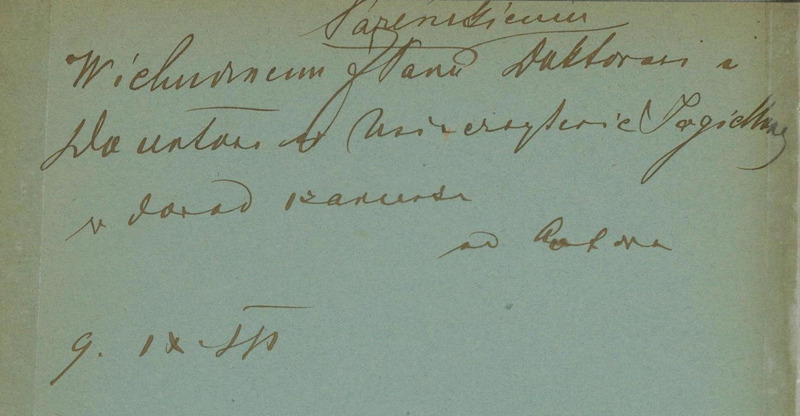 Pareńskiemu
Wielmożnemu Panu Doktorowi
Docentowi w Uniwersytecie Jagiell
w dowód szacunku
od Autora
9. IX